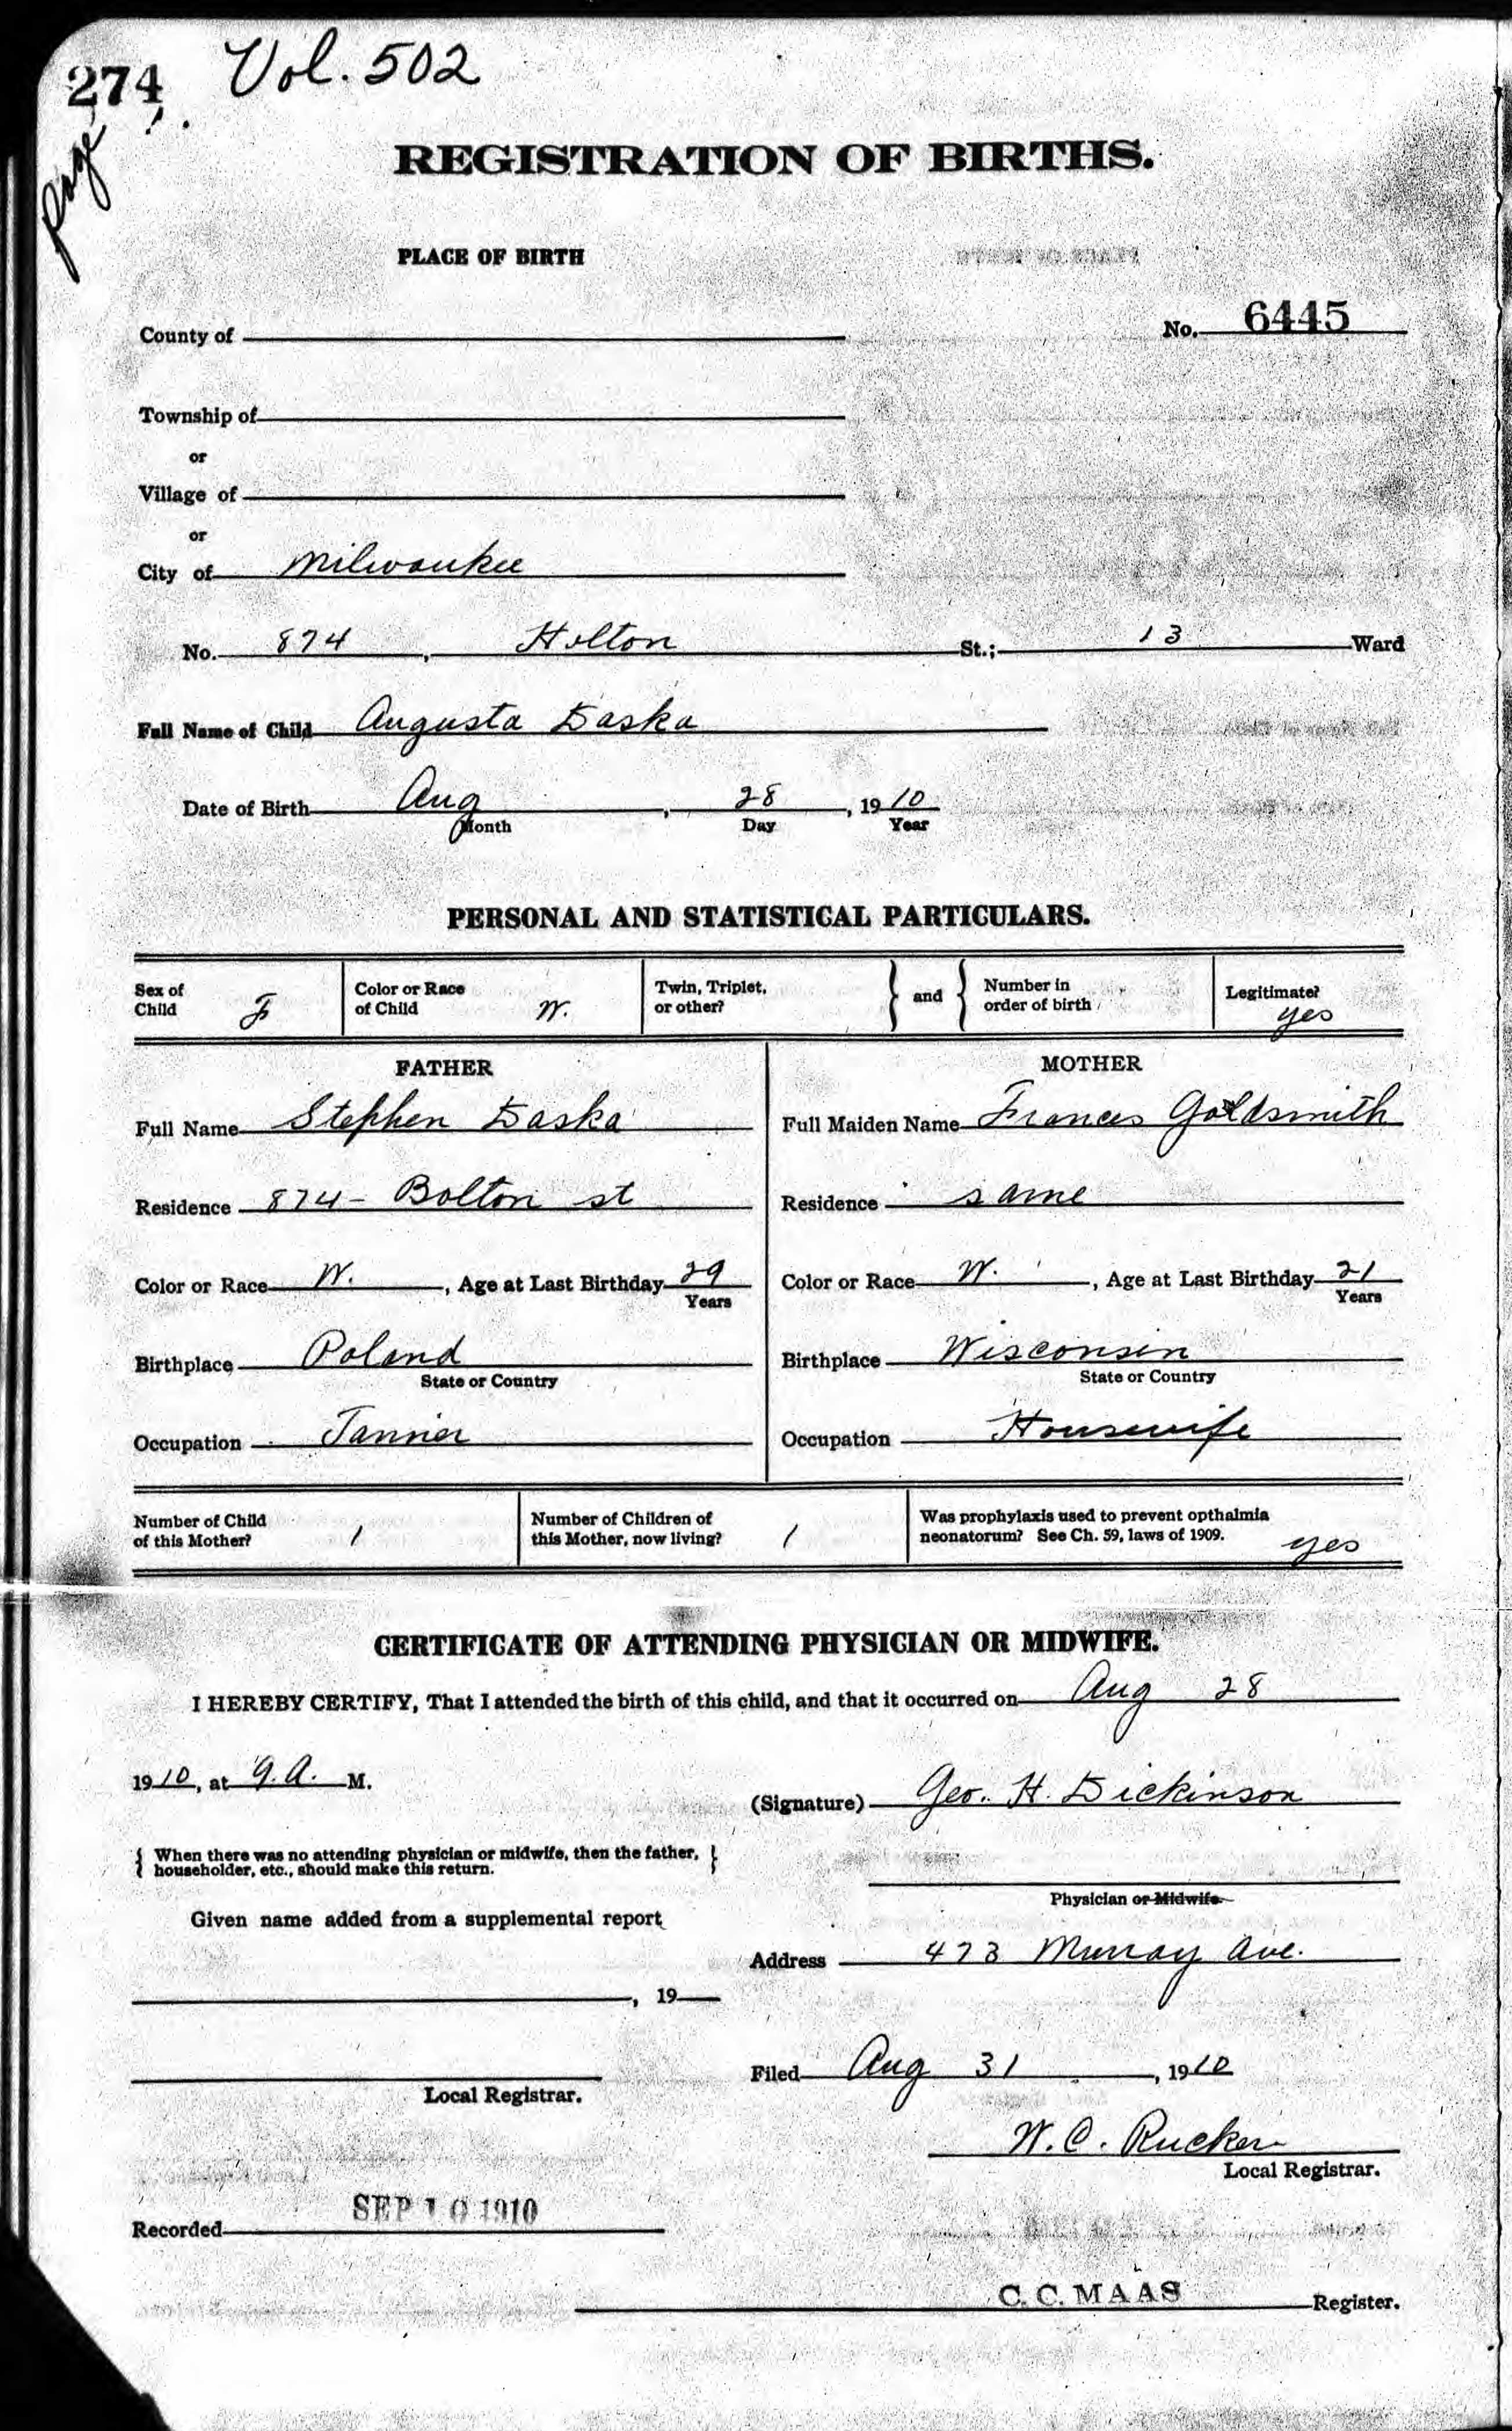 274 Vol. 502
Page
REGISTRATION OF BIRTHS.
PLACE OF BIRTH
No. 6445
County of
Township of
or
Village of
or
City of Milwaukee
No. 874, Holton St.; 13 Ward
Full Name of Child Augusta Daska
Date of Birth Aug, 28, 1910
Month Day Year
PERSONAL AND STATISTICAL PARTICULARS.
Sex of Child F
Color or Race of Child W.
Twin, Triplet, or other?
and
Number in order of birth
Legitimate? yes
FATHER
Full Name Stephen Daska
Residence 874 - Bolton st
Color or Race W., Age at Last Birthday 29
Years
Birthplace Poland
State or Country
Occupation Tanner
MOTHER
Full Maiden Name Frances Goldsmith
Residence same
Color or Race W., Age at Last Birthday 21
Years
Birthplace Wisconsin
State or Country
Occupation Housewife
Number of Child of this Mother? 1
Number of Children of this Mother, now living? 1
Was prophylaxis used to prevent opthalmia
neonatorum? See Ch. 59, laws of 1909. yes
CERTIFICATE OF ATTENDING PHYSICIAN OR MIDWIFE.
I HEREBY CERTIFY, That I attended the birth of this child, and that it occurred on Aug 28
1910, at 9. A. M.
(Signature) Geo. H. Dickinson
{ When there was no attending physician or midwife, then the father, }
householder, etc., should make this return.
Physician or Midwife.
Given name added from a supplemental report
Address 473 Murray Ave.
, 19
Filed Aug 31, 1910
Local Registrar.
W. C. Rucker
Local Registrar.
Recorded SEP 10 1910
C. C. MAAS Register.